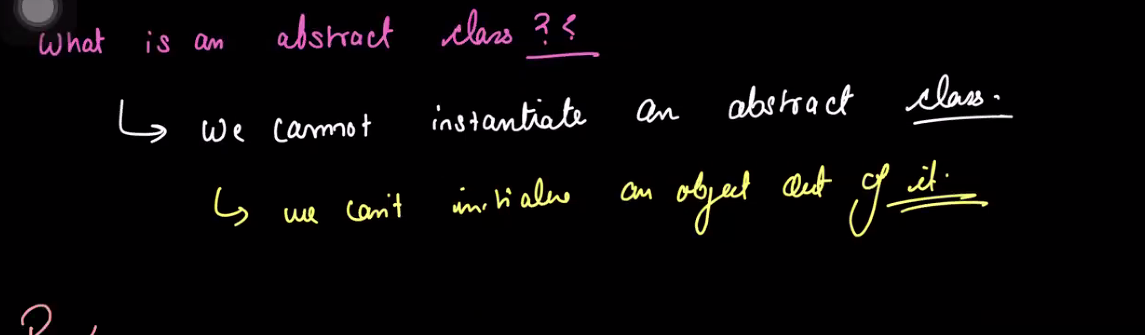 What is an abstract class ??
↳ we cannot instantiate an abstract class.
↳ we can't initialise an object out of it.